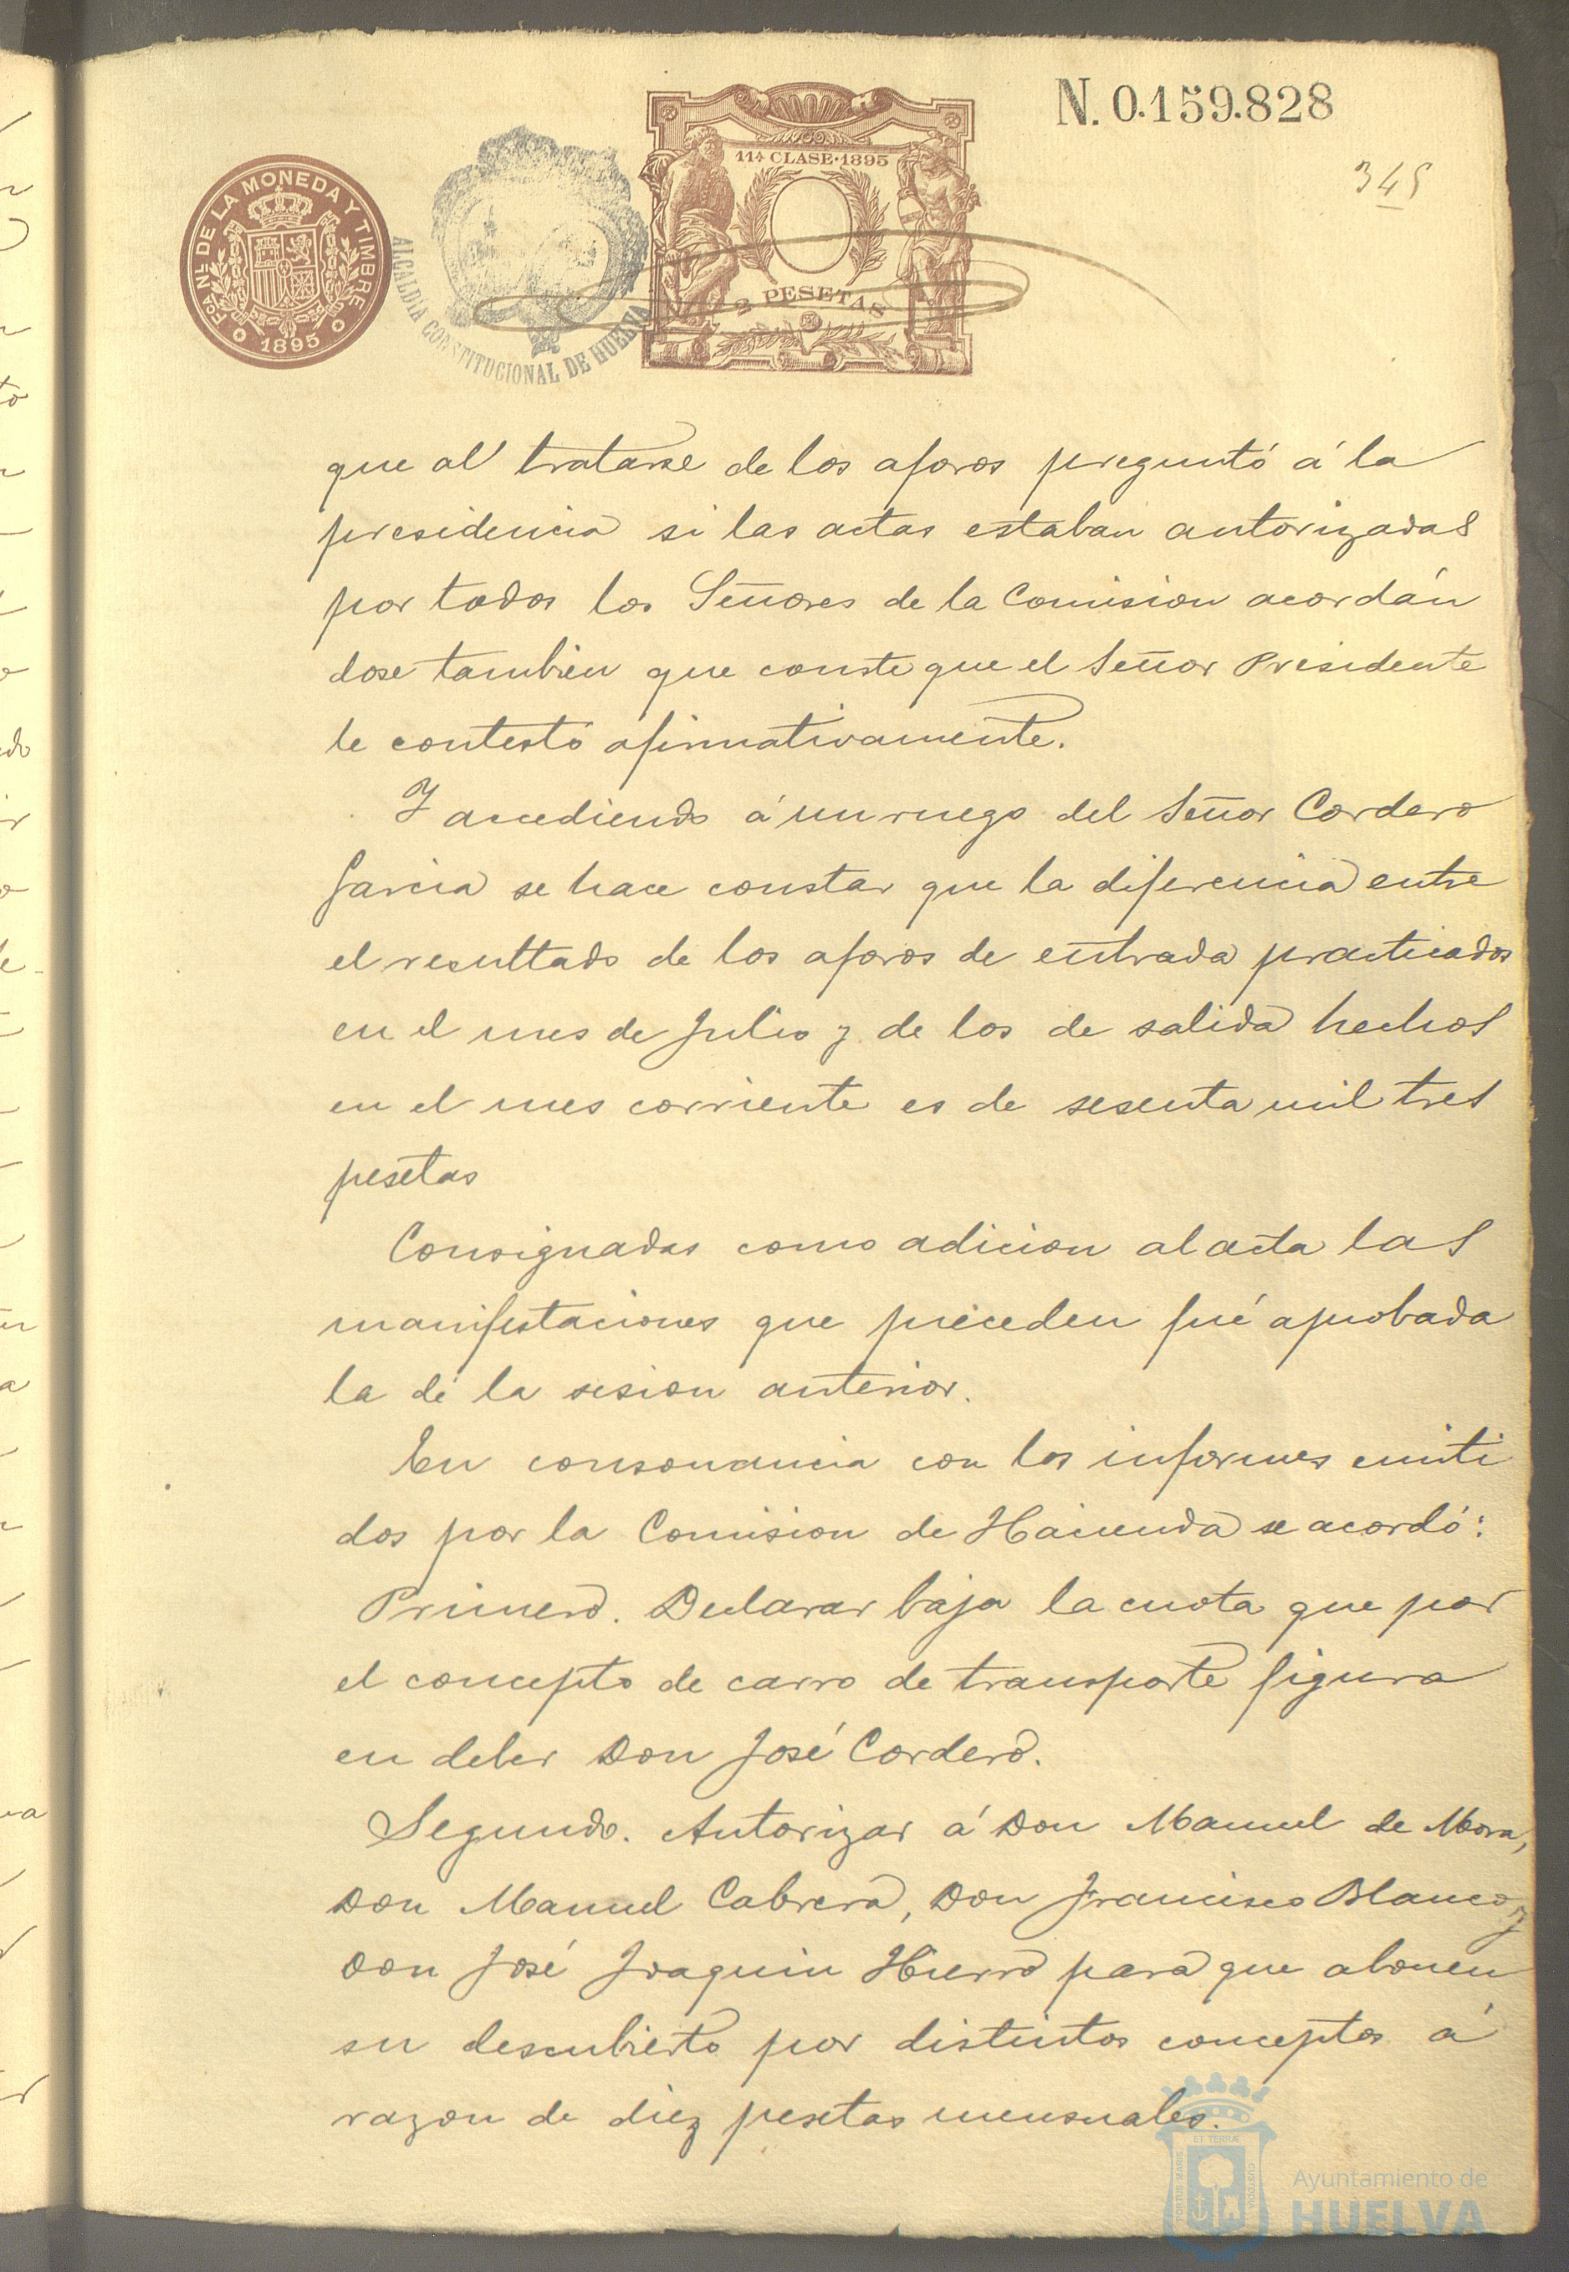 N. 0.159.828
345
FCA NL DE LA MONEDA Y TIMBRE
1895
ALCALDIA CONSTITUCIONAL DE HUELVA
11ª CLASE·1895
2 PESETAS
que al tratarse de los aforos preguntó á la
presidencia si las actas estaban autorizadas
por todos los Señores de la Comision acordán
dose tambien que conste que el Señor Presidente
le contestó afirmativamente.
Y accediendo á un ruego del Señor Cordero
Garcia se hace constar que la diferencia entre
el resultado de los aforos de entrada practicados
en el mes de Julio y de los de salida hechos
en el mes corriente es de sesenta mil tres
pesetas
Consignadas como adicion al acta las
manifestaciones que preceden fué aprobada
la de la sesion anterior.
En consonancia con los informes emiti
dos por la Comision de Hacienda se acordó:
Primero. Declarar baja la cuota que por
el concepto de carro de transporte figura
en deber Don José Cordero.
Segundo. Autorizar á Don Manuel de Mora,
Don Manuel Cabrera, Don Francisco Blanco y
Don José Joaquin Hierro para que abonen
su descubierto por distintos conceptos á
razon de diez pesetas mensuales.
Ayuntamiento de
HUELVA